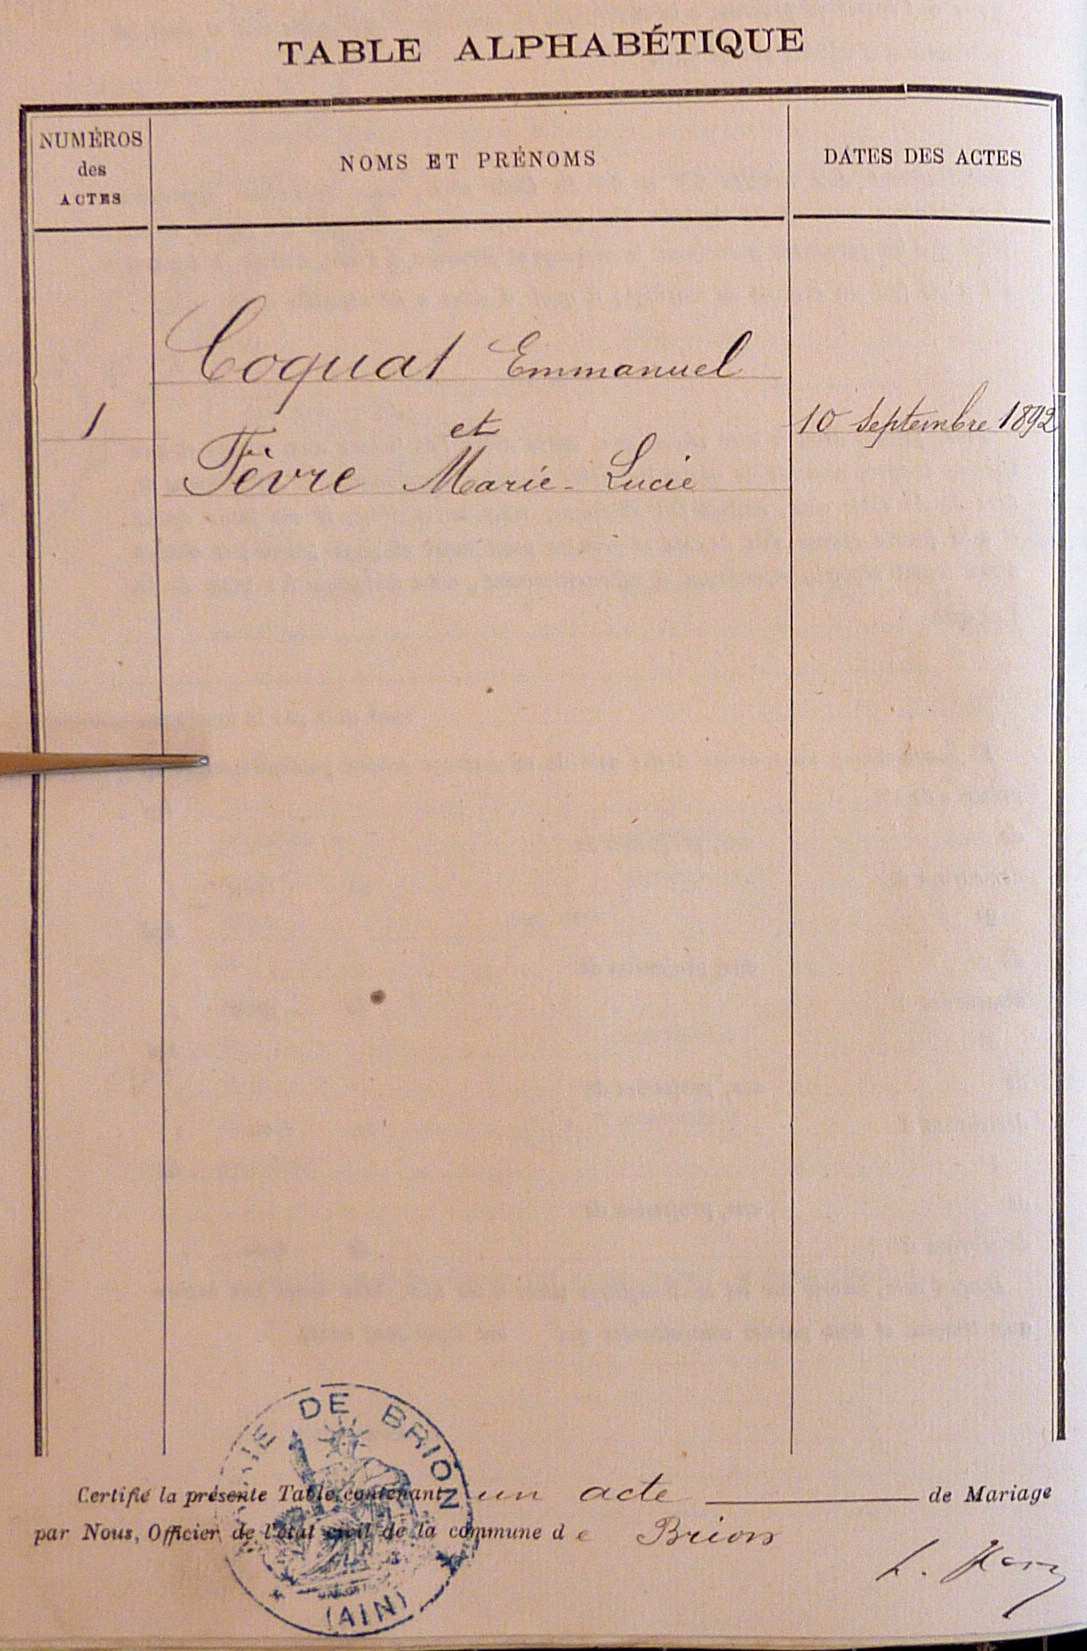 TABLE ALPHABÉTIQUE
NUMÉROS
des
ACTES
NOMS ET PRÉNOMS
DATES DES ACTES
Coquat Emmanuel
1
et
10 Septembre 1892
Fèvre Marie-Lucie
Certifié la présente Table contenant un acte de Mariage
par Nous, Officier de l'état civil de la commune de Brion
DE BRION
(AIN)